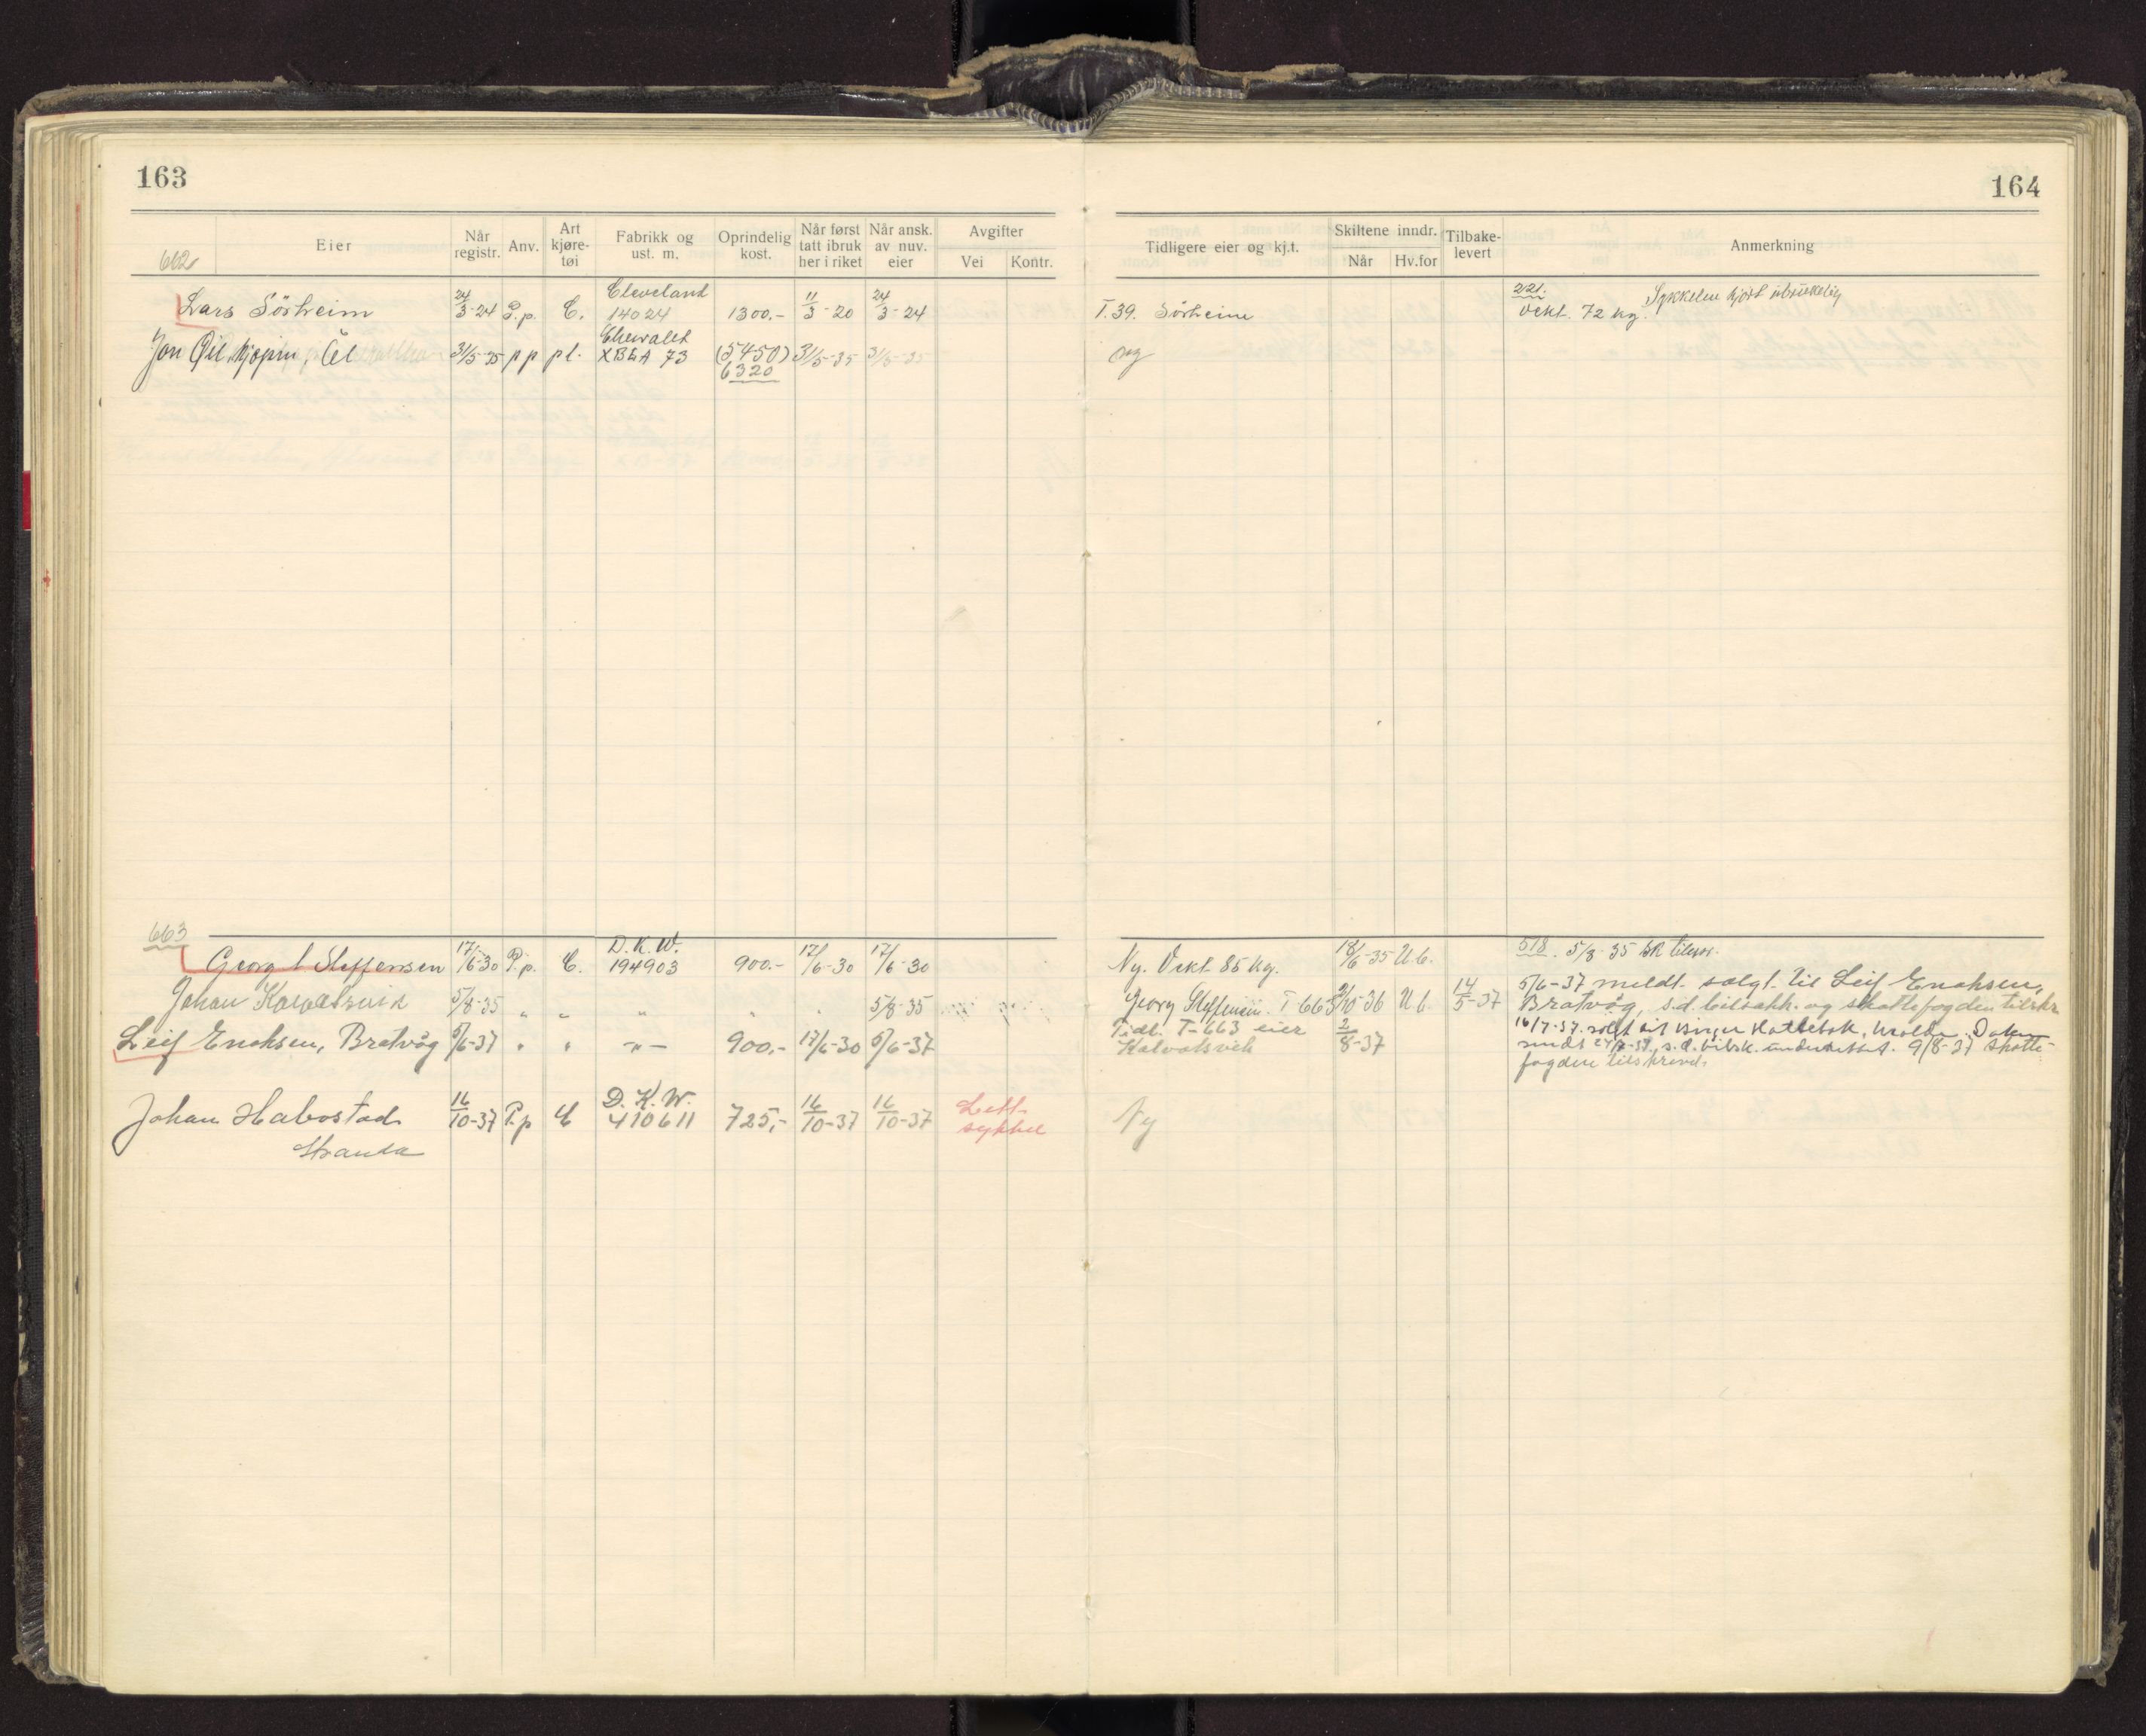 163
164
Eier
Når registr.
Anv.
Art kjøre-tøi
Fabrikk og ust. m.
Oprindelig kost.
Når først tatt ibruk her i riket
Når ansk. av nuv. eier
Avgifter
Vei
Kontr.
Tidligere eier og kj.t.
Skiltene inndr.
Når
Hv.for
Tilbake-levert
Anmerkning
662
Lars Sörheim 24/3-24 P.p. C. Cleveland 14024 1300.- 11/3-20 24/3-24 T.39. Sörheim 221. Vekt. 72 kg. Sykkelen kjört
Jon 31/5-35 pp pl. Chevrolet XBLA 73 (5450) 6320 31/5-35 31/5-35 ny
663
Georg Steffensen 17/6-30 P.p. C. D.K.W. 194903 900.- 17/6-30 17/6-30 Ny. Vekt 85 kg. 18/6-35 U b. 518. 5/8-35
Johan 5/8-35 " " " " " 5/8-35 Georg Steffensen. T 663 -36 U b. 14/5-37 5/6-37 meldt solgt til Leif Enoksen,
Bratvåg, s.d. og skattefogden tilskr
Leif Enoksen, Bratvåg 5/6-37 " " -"- 900.- 17/6-30 5/6-37 Tidl. T-663 eier 2/8-37 16/7-37 solgt til
Kalvatsvik
s.d. underrettet. 9/8-37 skatte-
fogden tilskrevet.
Johan Habostad 16/10-37 P.p C D.K.W. 410611 725,- 16/10-37 16/10-37 Lett-sykkel Ny
Stranda